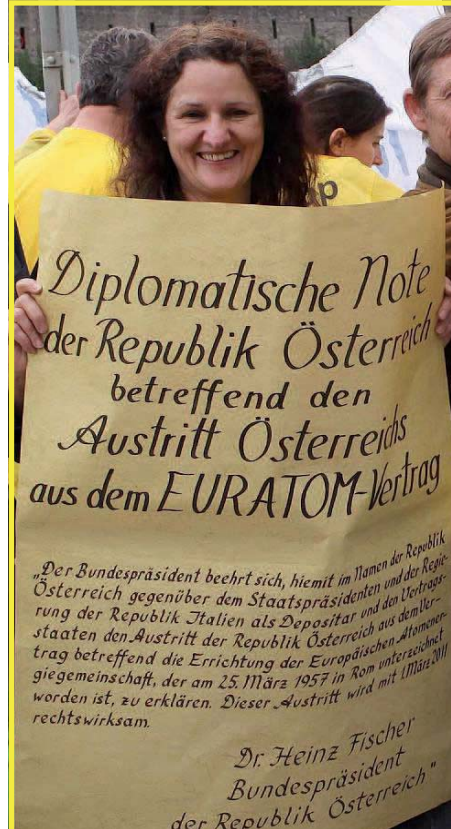 p
Diplomatische Note
der Republik Österreich
betreffend den
Austritt Österreichs
aus dem EURATOM-Vertrag
„Der Bundespräsident beehrt sich, hiemit im Namen der Republik
Österreich gegenüber dem Staatspräsidenten und der Regie-
rung der Republik Italien als Depositar und den Vertrags-
staaten den Austritt der Republik Österreich aus dem Ver-
trag betreffend die Errichtung der Europäischen Atomener-
giegemeinschaft, der am 25. März 1957 in Rom unterzeichnet
worden ist, zu erklären. Dieser Austritt wird mit 1. März 2011
rechtswirksam.
Dr. Heinz Fischer
Bundespräsident
der Republik Österreich"